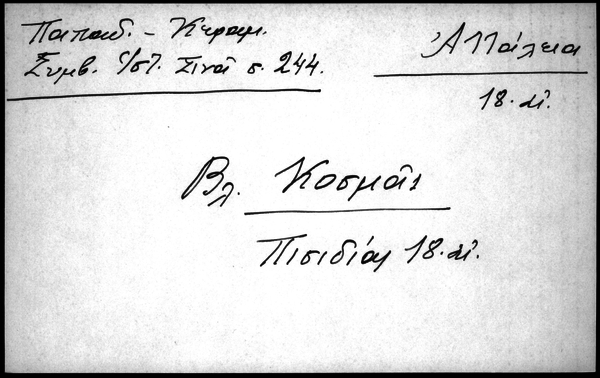 Παπαδ. - Κεραμ.
Συμβ. ἱστ. Σινᾶ σ. 244.
Ἀττάλεια
18. αἰ.
Βλ. Κοσμᾶς
Πισιδίας 18. αἰ.